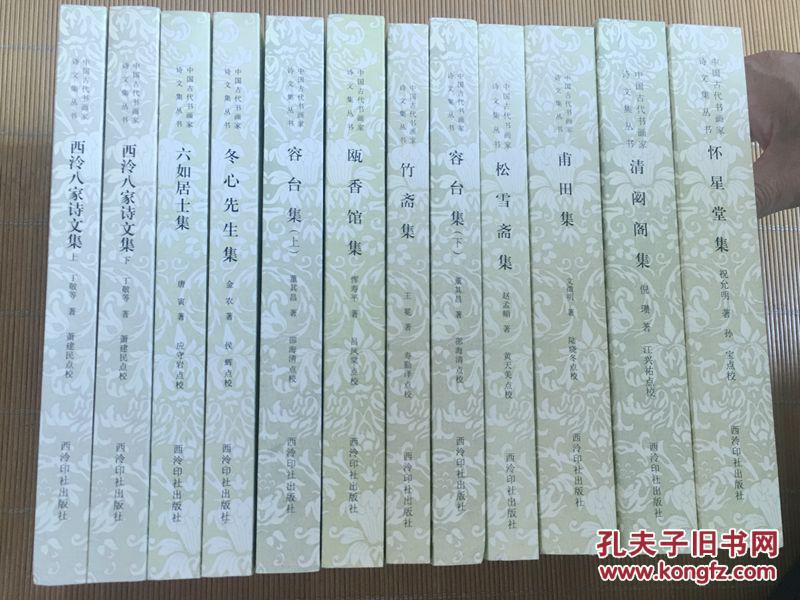 中国古代书画家
诗文集丛书
西泠八家诗文集 上
丁敬等 著
萧建民点校
西泠印社出版社
中国古代书画家
诗文集丛书
西泠八家诗文集 下
丁敬等 著
萧建民点校
西泠印社出版社
中国古代书画家
诗文集丛书
六如居士集
唐寅 著
应守岩点校
西泠印社出版社
中国古代书画家
诗文集丛书
冬心先生集
金农 著
侯辉点校
西泠印社出版社
中国古代书画家
诗文集丛书
容台集(上)
董其昌 著
邵海清点校
西泠印社出版社
中国古代书画家
诗文集丛书
瓯香馆集
恽寿平 著
吕凤棠点校
西泠印社出版社
中国古代书画家
诗文集丛书
竹斋集
王冕 著
寿勤泽点校
西泠印社出版社
中国古代书画家
诗文集丛书
容台集(下)
董其昌 著
邵海清点校
西泠印社出版社
中国古代书画家
诗文集丛书
松雪斋集
赵孟頫 著
黄天美点校
西泠印社出版社
中国古代书画家
诗文集丛书
甫田集
文徵明 著
陆晓冬点校
西泠印社出版社
中国古代书画家
诗文集丛书
清閟阁集
倪瓒 著
江兴祐点校
西泠印社出版社
中国古代书画家
诗文集丛书
怀星堂集
祝允明 著
孙宝点校
西泠印社出版社
孔夫子旧书网
www.kongfz.com